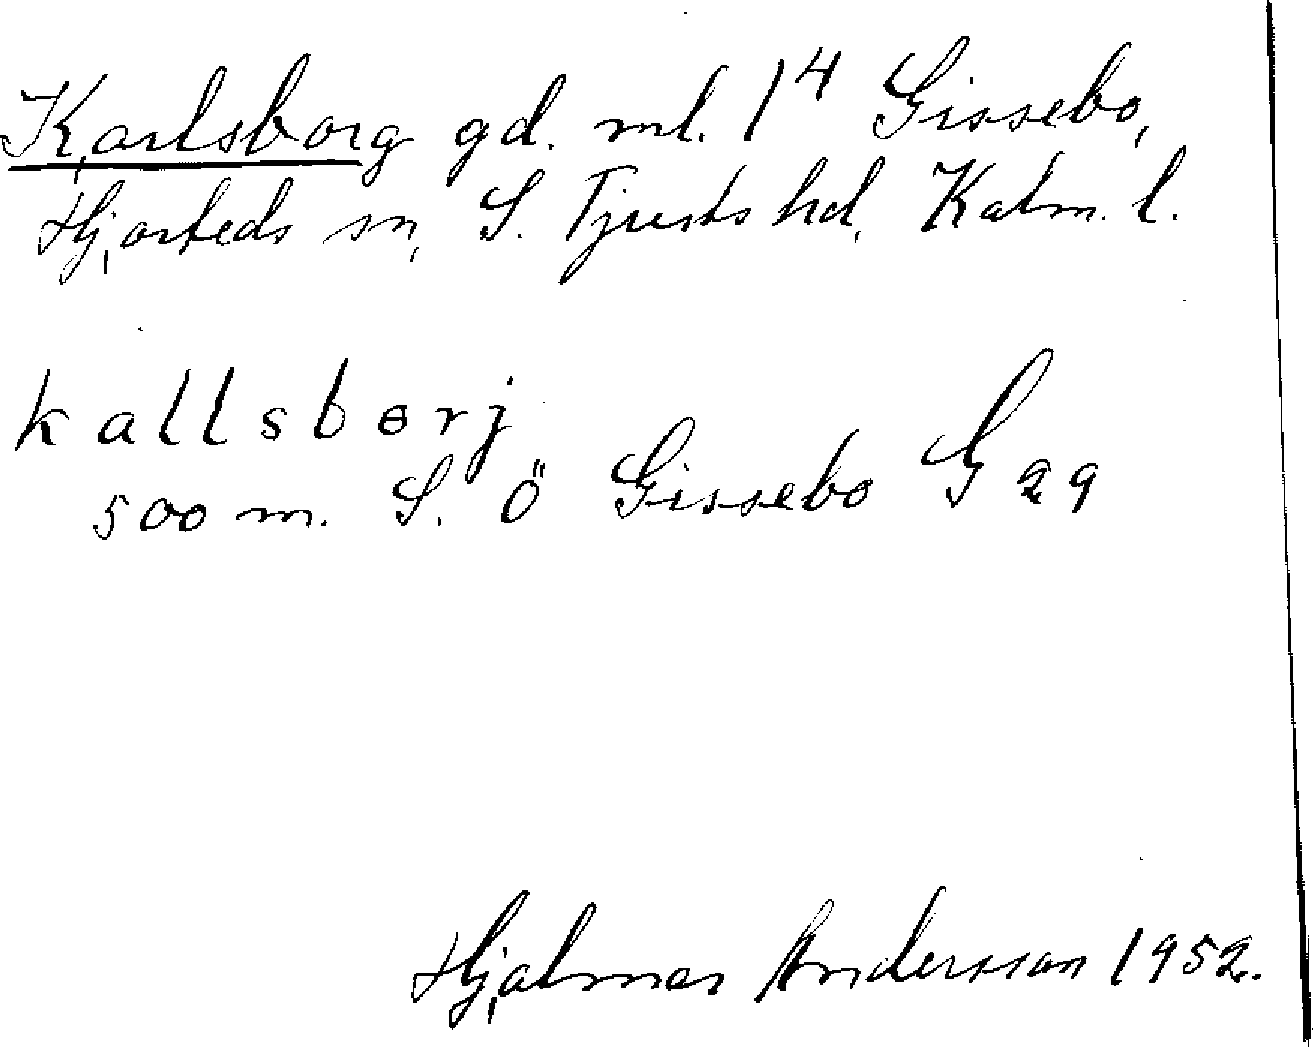 Karlsborg gd. ml. 1⁴ Gissebo,
Hjorteds sn, S. Tjusts hd, Kalm. l.
kallsbɵrj
500 m. S. Ö Gissebo G 29
Hjalmar Andersson 1952.